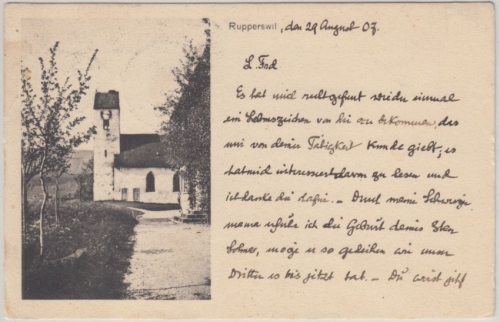 Rupperswil, den 29 August 07.
L. Frd.
Es hat mich recht gefreut wieder einmal
ein Lebenszeichen von dir zu bekommen, das
mir von deiner Tätigkeit Kunde giebt, es
hat mich interessiert davon zu lesen und
ich danke dir dafür. – Durch meine Schwieger-
mama erfuhr ich die Geburt deines
Sohnes, möge er so gedeihen wie unser
Dritter es bis jetzt hat. – Du wirst jetzt